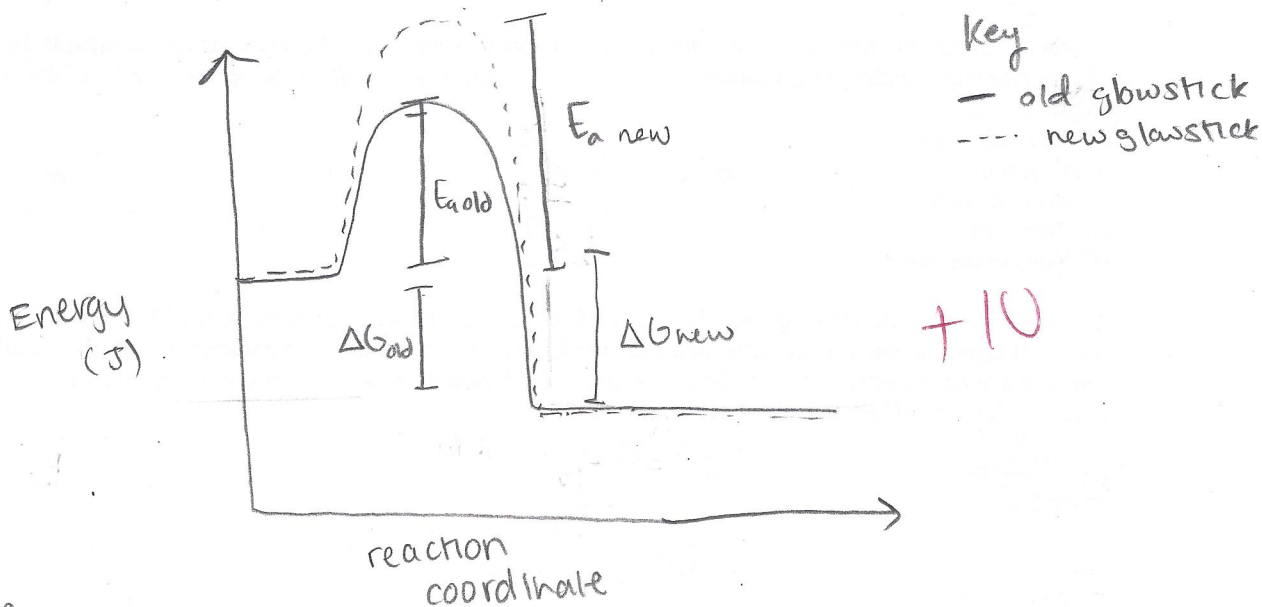 Key
— old glowstick
---- new glowstick
Ea new
Ea old
Energy
(J)
ΔGold
ΔGnew
+10
reaction
coordinate